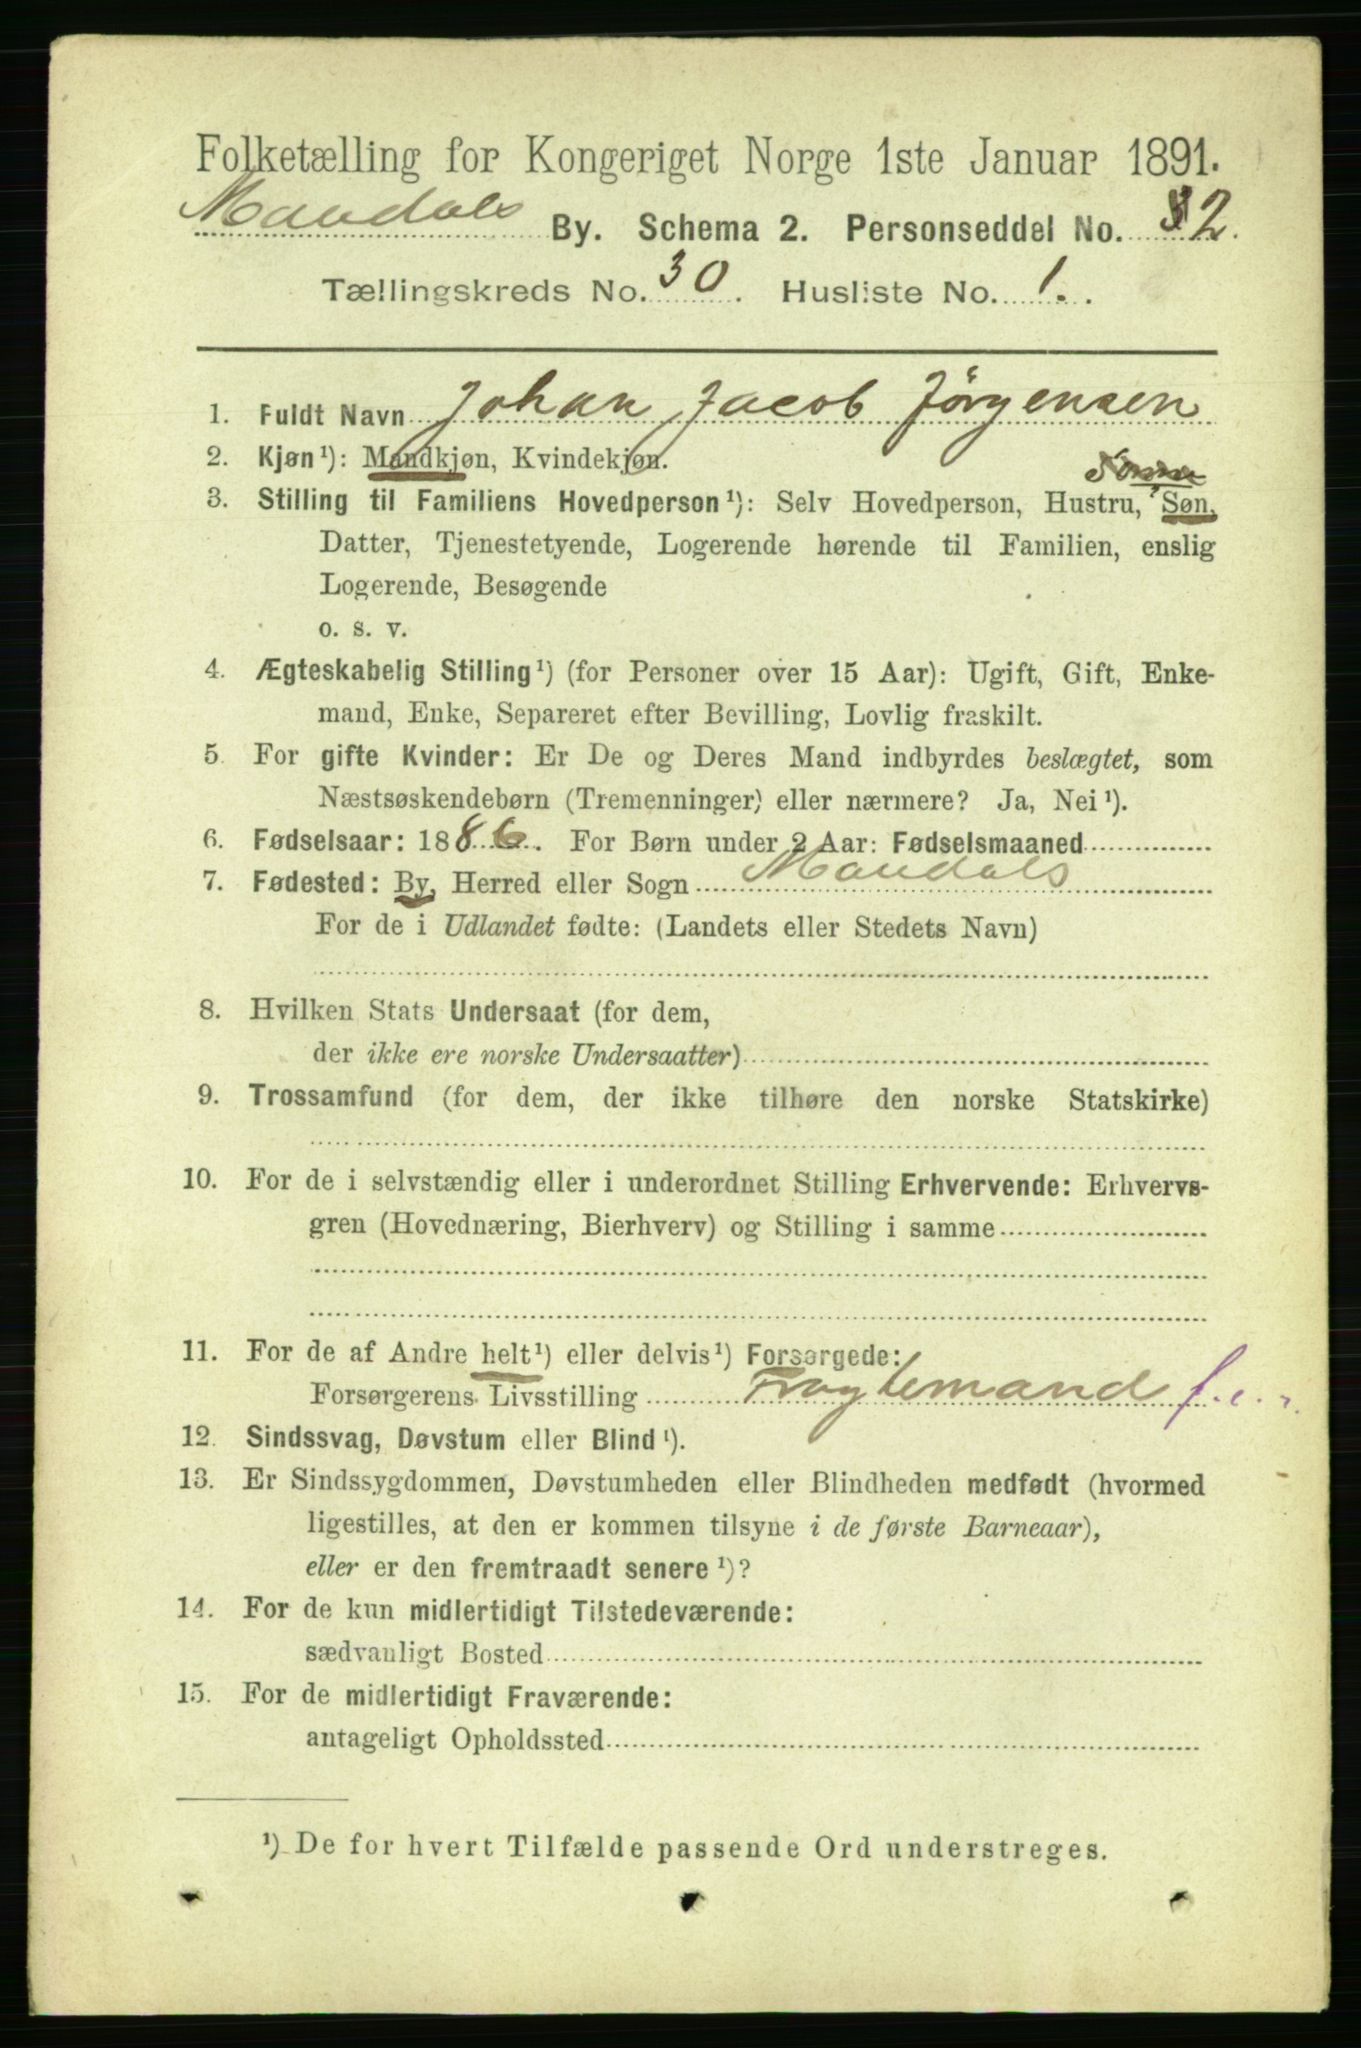 Folketælling for Kongeriget Norge 1ste Januar 1891.
Mandals By. Schema 2. Personseddel No. 2.
Tællingskreds No. 30. Husliste No. 1.
1. Fuldt Navn Johan Jacob Jørgensen
2. Kjøn¹): Mandkjøn, Kvindekjøn.
3. Stilling til Familiens Hovedperson¹): Selv Hovedperson, Hustru, Søn,
Datter, Tjenestetyende, Logerende hørende til Familien, enslig
Logerende, Besøgende
o. s. v.
4. Ægteskabelig Stilling¹) (for Personer over 15 Aar): Ugift, Gift, Enke-
mand, Enke, Separeret efter Bevilling, Lovlig fraskilt.
5. For gifte Kvinder: Er De og Deres Mand indbyrdes beslægtet, som
Næstsøskendebørn (Tremenninger) eller nærmere? Ja, Nei¹).
6. Fødselsaar: 1886. For Børn under 2 Aar: Fødselsmaaned
7. Fødested: By, Herred eller Sogn Mandals
For de i Udlandet fødte: (Landets eller Stedets Navn)
8. Hvilken Stats Undersaat (for dem,
der ikke ere norske Undersaatter)
9. Trossamfund (for dem, der ikke tilhøre den norske Statskirke)
10. For de i selvstændig eller i underordnet Stilling Erhvervende: Erhvervs-
gren (Hovednæring, Bierhverv) og Stilling i samme
11. For de af Andre helt¹) eller delvis¹) Forsørgede:
Forsørgerens Livsstilling Fragtemand
12. Sindssvag, Døvstum eller Blind¹).
13. Er Sindssygdommen, Døvstumheden eller Blindheden medfødt (hvormed
ligestilles, at den er kommen tilsyne i de første Barneaar),
eller er den fremtraadt senere¹)?
14. For de kun midlertidigt Tilstedeværende:
sædvanligt Bosted
15. For de midlertidigt Fraværende:
antageligt Opholdssted
¹) De for hvert Tilfælde passende Ord understreges.